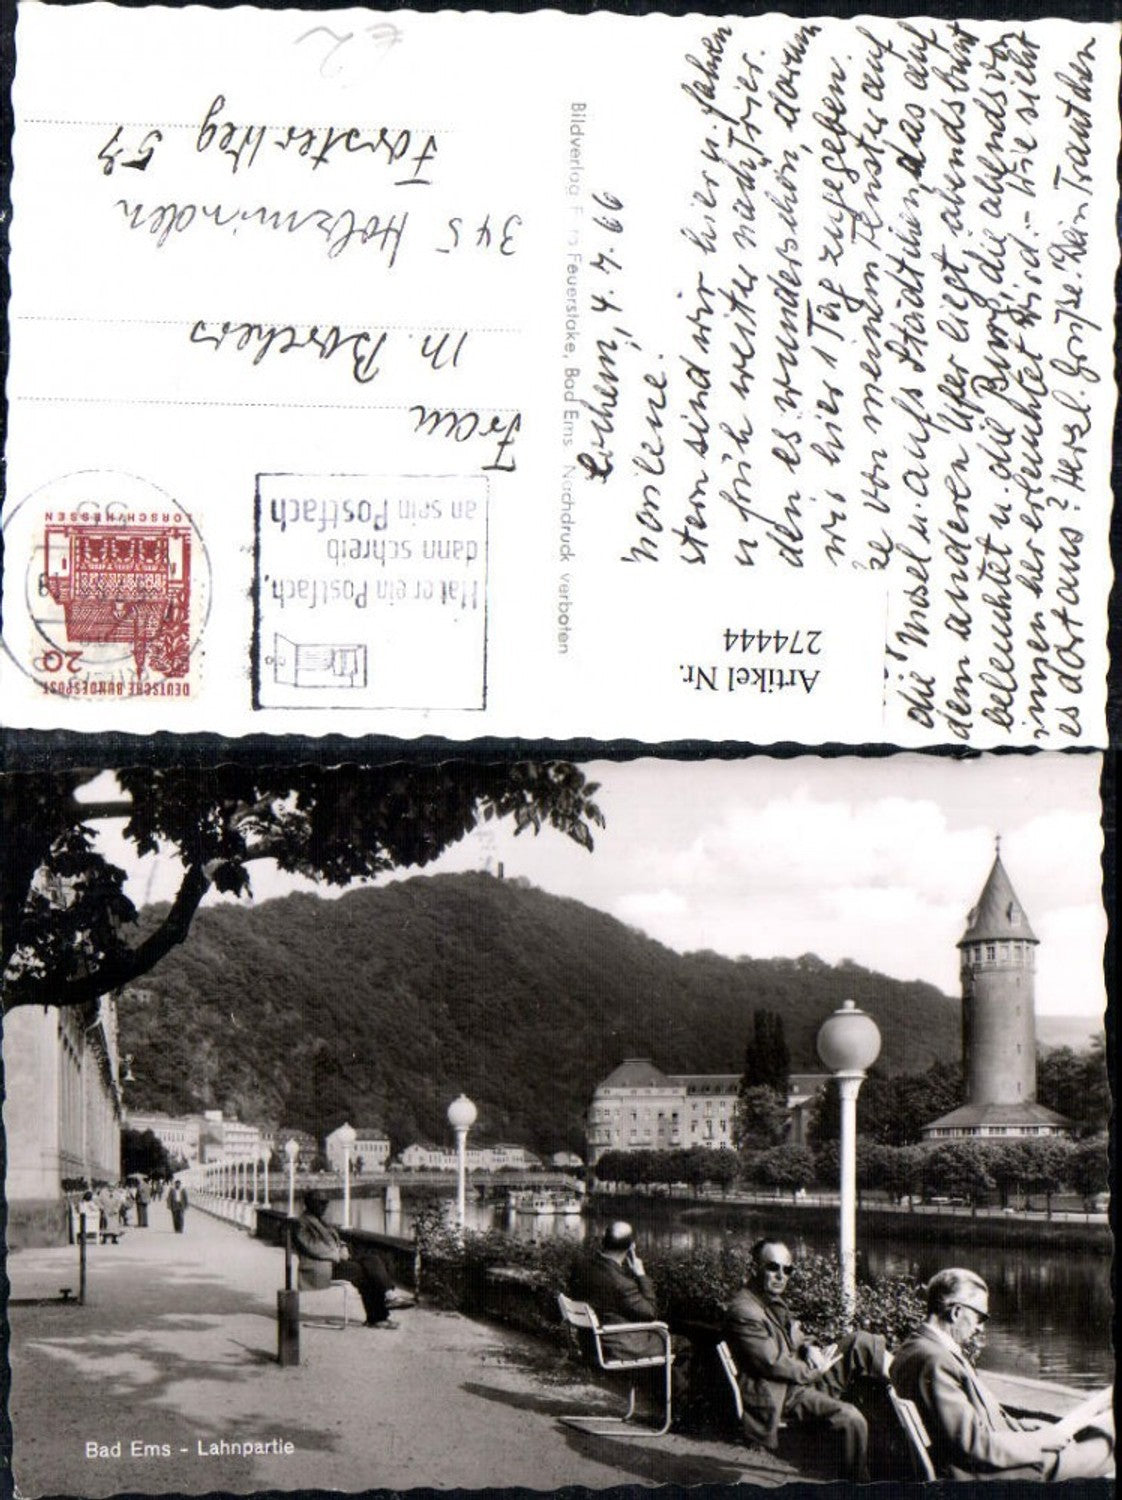 € 2
Cochem, 4.7.66
Marlene.
stern sind wir hier u. fahren
früh weiter nach Trier.
den es wunderschön, darum
wir hier 1 Tag zugegeben.
ze von meinem Fenster auf
die Mosel u. aufs Städtchen, das auf
dem anderen Ufer liegt, abends bunt
beleuchtet u. die Burg, die abends von
innen her erleuchtet wird. - Wie sieht
es dort aus? Herzl. Grüße! Dein Trautchen
Bildverlag F Feuerstake, Bad Ems Nachdruck verboten
DEUTSCHE BUNDESPOST
20
LORSCH/HESSEN
TRIER
Hat er ein Postfach,
dann schreib
an sein Postfach
Frau
M. Borchers
345 Holzminden
Forster Weg 57
Artikel Nr.
274444
Bad Ems - Lahnpartie